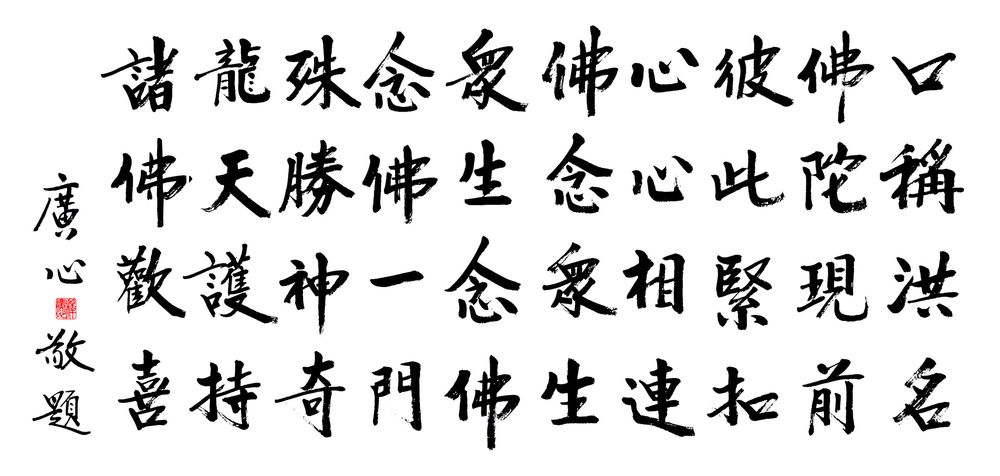 口稱洪名
佛陀現前
彼此緊扣
心心相連
佛念眾生
眾生念佛
念佛一門
殊勝神奇
龍天護持
諸佛歡喜
廣心敬題